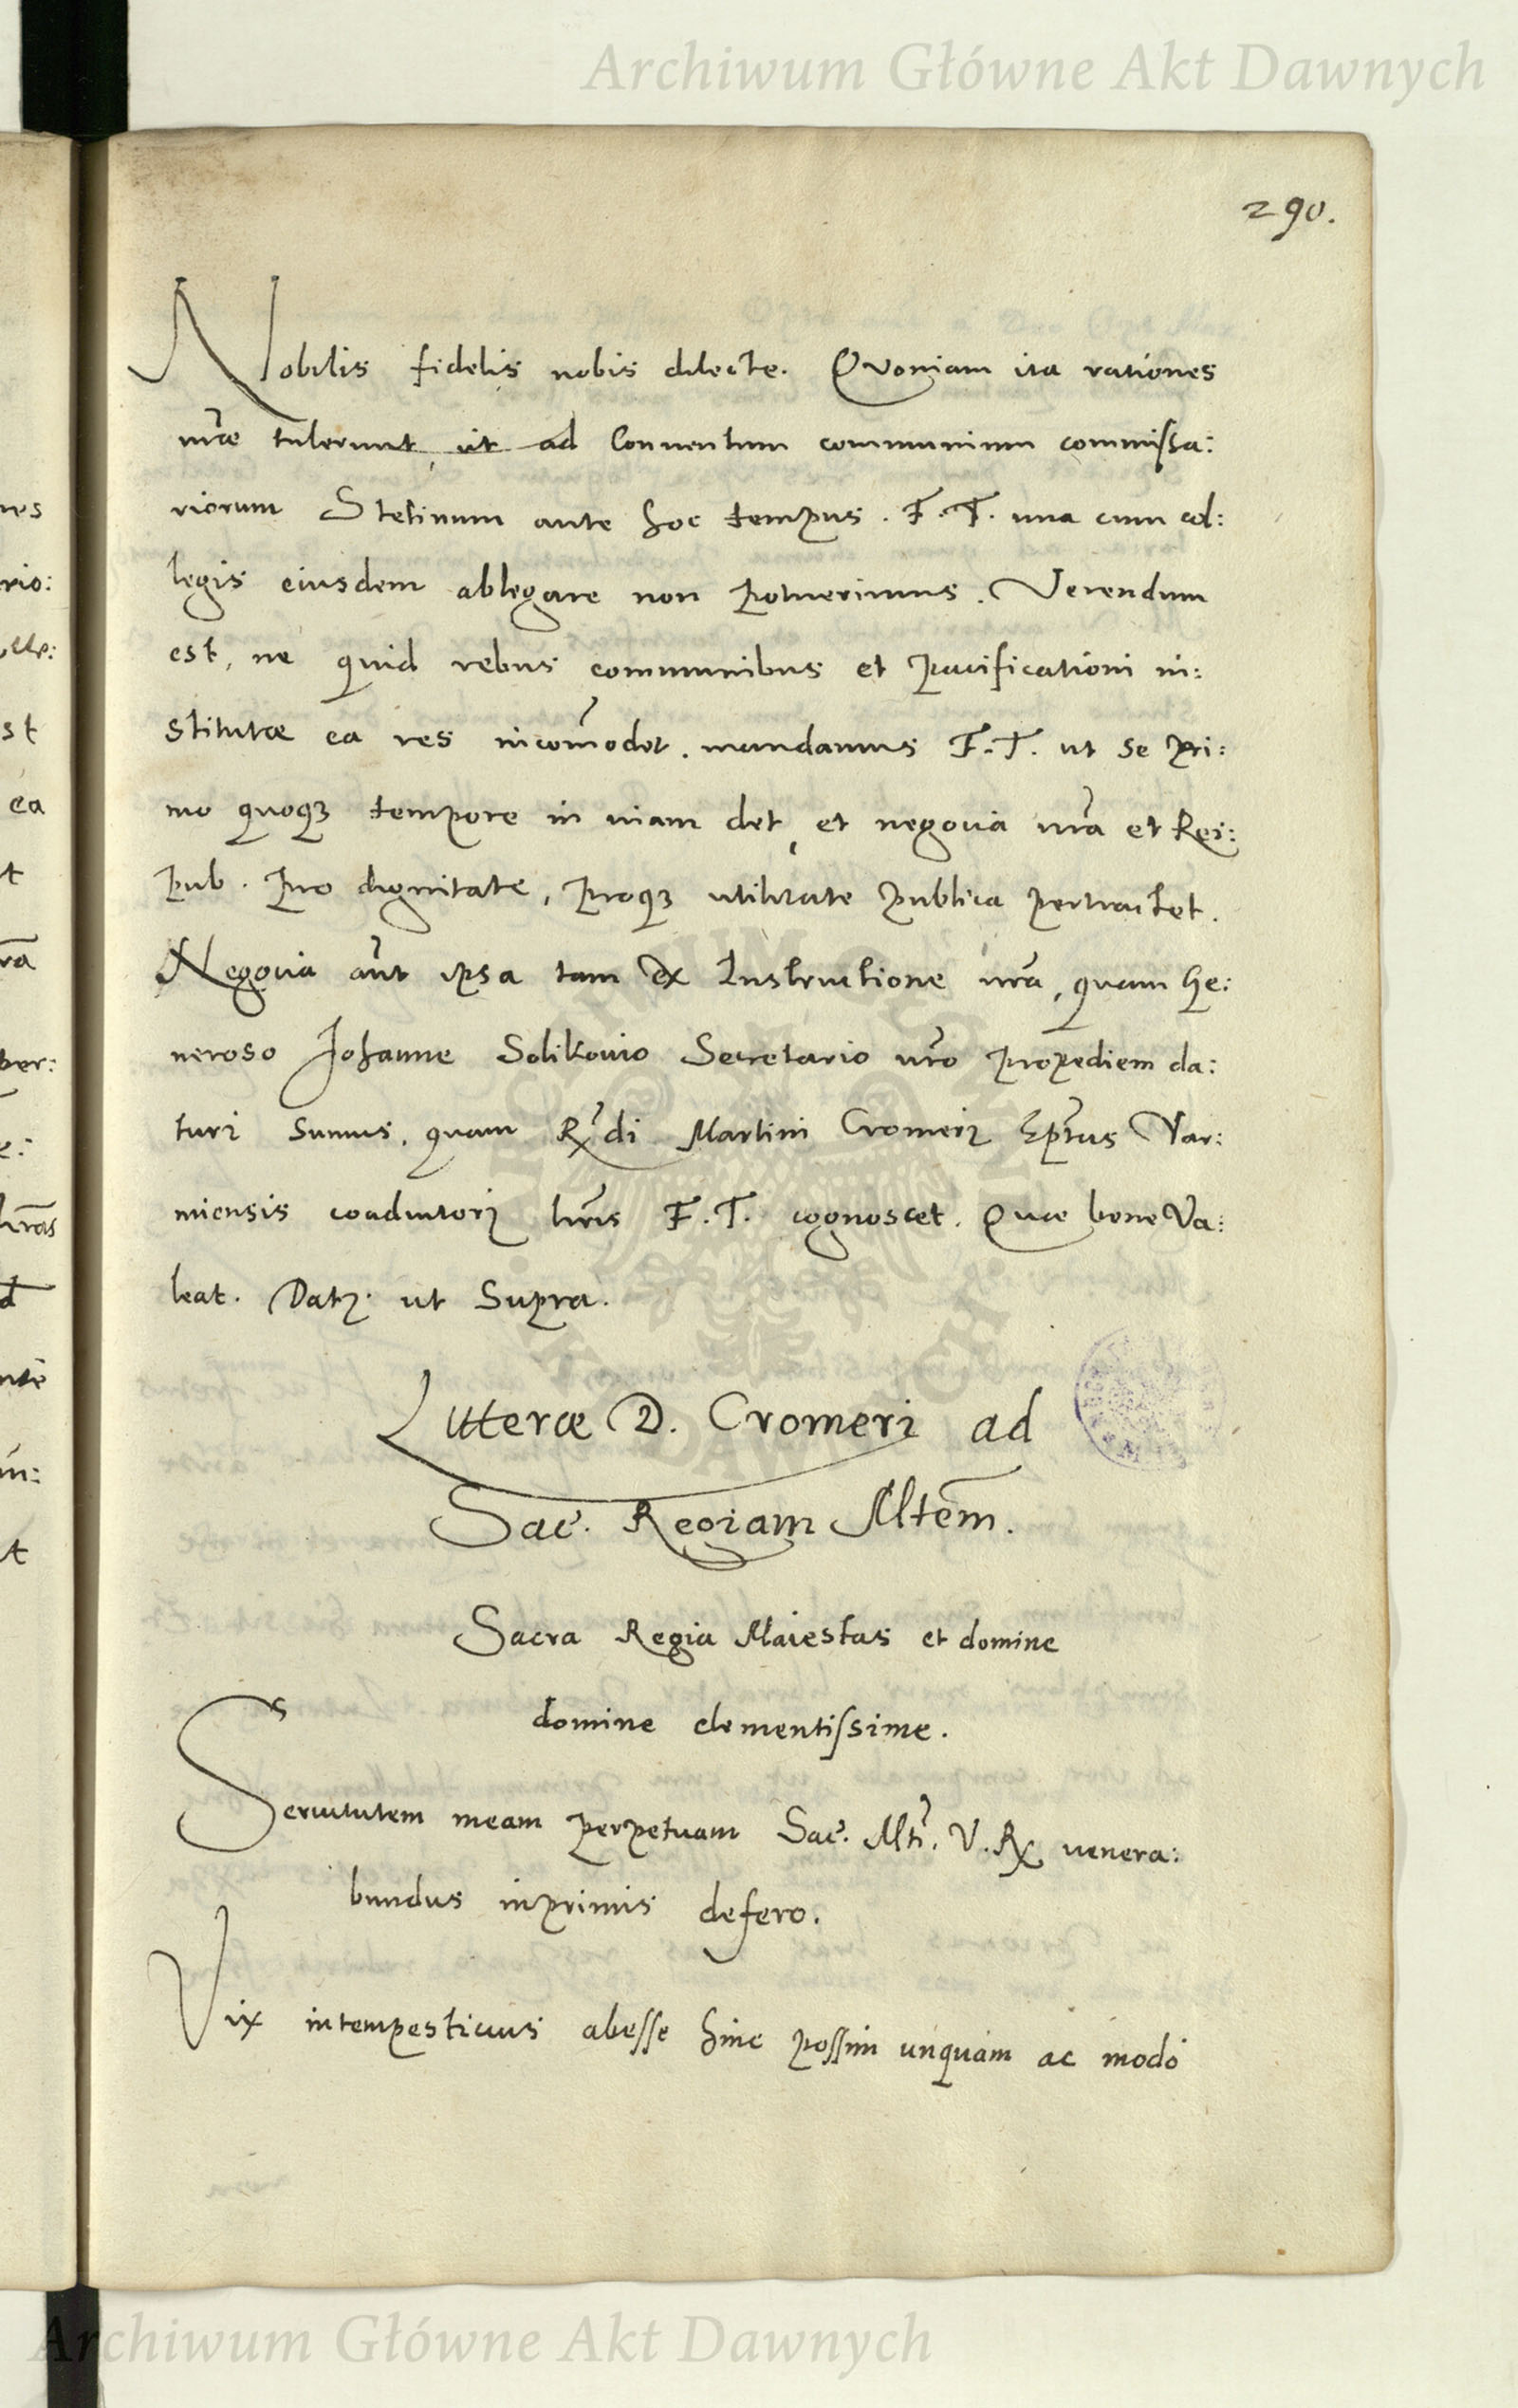 Archiwum Główne Akt Dawnych
290.
Nobilis fidelis nobis dilecte. Quoniam ita rationes
nr̃ae tulerunt, ut ad Conuentum communium commissa:
riorum Stetinum ante hoc tempus. F. T. una cum col:
legis eiusdem ablegare non potuerimus. Verendum
est, ne quid rebus communibus et pacificationi in:
stitutae ea res incom̃odet. mandamus F. T. ut se pri:
mo quoqꝫ tempore in uiam det, et negocia nr̃a et Rei:
pub. pro dignitate, proqꝫ utilitate publica pertractet.
Negocia aũt ipsa tam ex Instructione nr̃a, quam Ge:
neroso Johanne Solikouio Secretario nr̃o propediem da:
turi sumus, quam R̃ndi Martini Cromeri Ep̃tus Var:
miensis coadiutoris lr̃is F. T. cognoscet. Quae bene Va:
leat. Datꝫ. ut Supra.
Litterae D. Cromeri ad
Sac̃. Regiam Mtem̃.
Sacra Regia Maiestas et domine
domine clementissime.
Seruitutem meam perpetuam Sac̃. Mti̓. V. Rx̃ venera:
bundus inprimis defero.
Vix intempestiuus abesse hinc possim unquam ac modo
Archiwum Główne Akt Dawnych